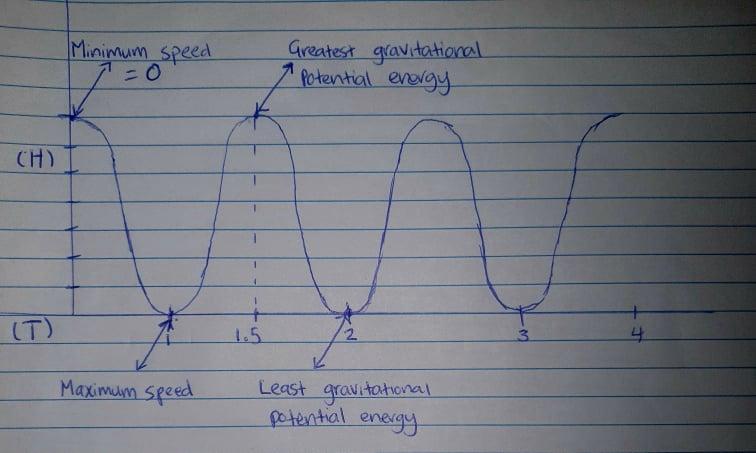 Minimum speed
= 0
Greatest gravitational
Potential energy
(H)
(T)
1
1.5
2
3
4
Maximum speed
Least gravitational
potential energy